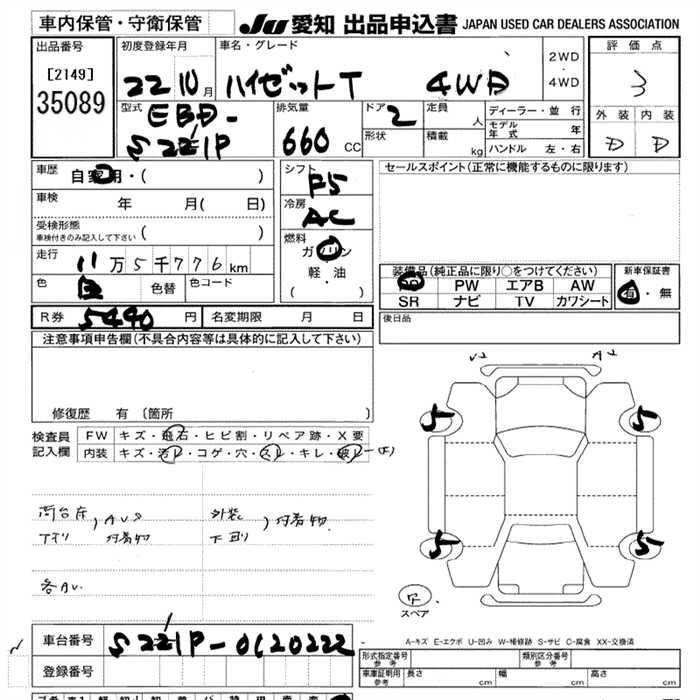 車内保管・守衛保管
JU 愛知 出品申込書 JAPAN USED CAR DEALERS ASSOCIATION
出品番号
[2149]
35089
初度登録年月
22 10月
車名・グレード
ハイゼットT 4WD
2WD
・
4WD
評価点
3
外装 内装
D D
型式
EBD-
S221P
排気量
660 CC
ドア 2
形状
定員 人
積載 kg
ディーラー・並行
モデル年式 年
ハンドル 左・右
車歴
自家用・( )
車検 年 月( 日)
受検形態
車検付きのみ記入して下さい ( )
走行 11万5千776km
色 白 色替 色コード
シフト
F5
冷房
AC
燃料
ガソリン
軽・油
( )
セールスポイント(正常に機能するものに限ります)
装備品(純正品に限り○をつけてください)
PS PW エアB AW
SR ナビ TV カワシート
新車保証書
有・無
R券 5440円 名変期限 月 日
後日品
注意事項申告欄(不具合内容等は具体的に記入して下さい)
修復歴 有 (箇所 )
検査員
記入欄
FW キズ・飛石・ヒビ割・リペア跡・X要
内装 キズ・汚レ・コゲ・穴・スレ・キレ・破レ
荷台床
下回り
付着物
外装
付着物
各AU.
5 5
5 5
スペア
A-キズ E-エクボ U-凹み W-補修跡 S-サビ C-腐食 XX-交換済
車台番号 S221P-0120222
登録番号
形式指定番号 参考
類別区分番号 参考
車庫証明用 参考 長さ cm 幅 cm 高さ cm